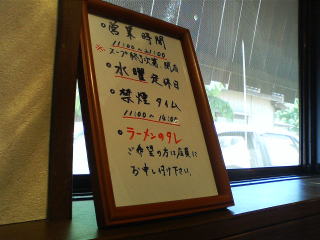 ・営業時間
11:00～21:00
※スープ終了次第 閉店
・水曜 定休日
・禁煙 タイム
11:00～14:00
・ラーメンのタレ
ご希望の方は店員に
お申し付け下さい。